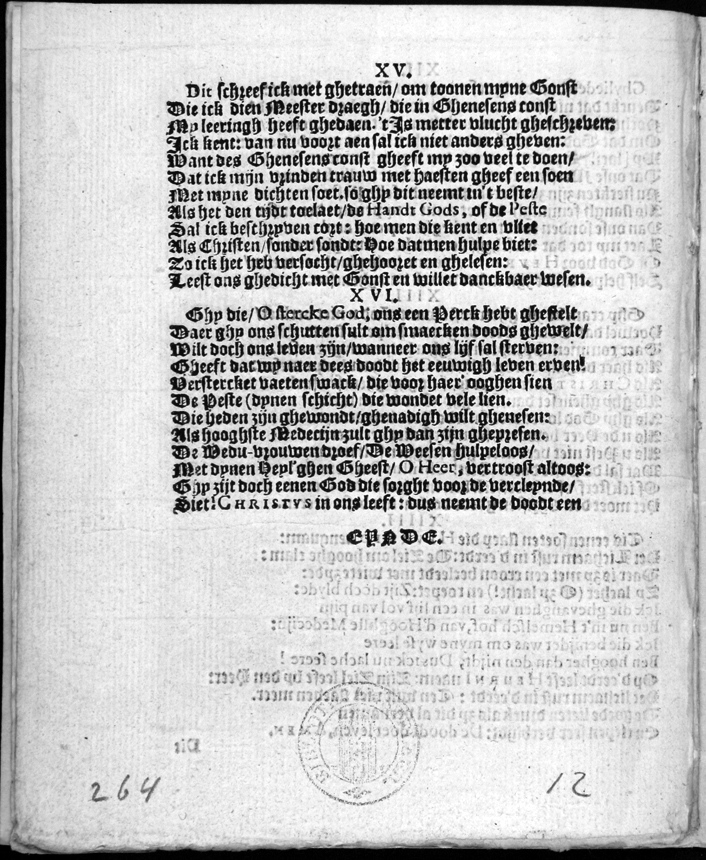 XV.
Dit schreef ick met ghetraen/ om toonen myne Gonst
Die ick dien Meester draegh/ die in Ghenesens const
My leeringh heeft ghedaen. 't Is metter vlucht gheschreven:
Ick kent: van nu voort aen sal ick niet anders gheven:
Want des Ghenesens const gheeft my zoo veel te doen/
Dat ick mijn vrinden trauw met haesten gheef een soen
Met myne dichten soet. so ghy dit neemt in't beste/
Als het den tijdt toelaet/ de Handt Gods, of de Peste
Sal ick beschryven cort: hoe men die kent en vliet
Als Christen/ sonder sondt: Hoe datmen hulpe biet:
Zo ick het heb versocht/ ghehooret en ghelesen:
Leest ons ghedicht met Gonst en willet danckbaer wesen.
XVI.
Ghy die/ O stercke God, ons een Perck hebt ghestelt
Daer ghy ons schutten sult om smaecken doods ghewelt/
Wilt doch ons leven zijn/ wanneer ons lijf sal sterven:
Gheeft dat wy naer dees doodt het eeuwigh leven erven!
Verstercket vaeten swack/ die voor haer' ooghen sien
De Peste (dynen schicht) die wondet vele lien.
Die heden zijn ghewondt/ ghenadigh wilt ghenesen:
Als hooghste Medecijn zult ghy dan zijn ghepresen.
De Wedu-vrouwen droef/ De Weesen hulpeloos/
Met dynen Heyl'ghen Gheest/ O Heer, vertroost altoos:
Ghy zijt doch eenen God die sorght voor de vercleynde/
Siet! CHRISTVS in ons leeft: dus neemt de doodt een
EYNDE.
264
12